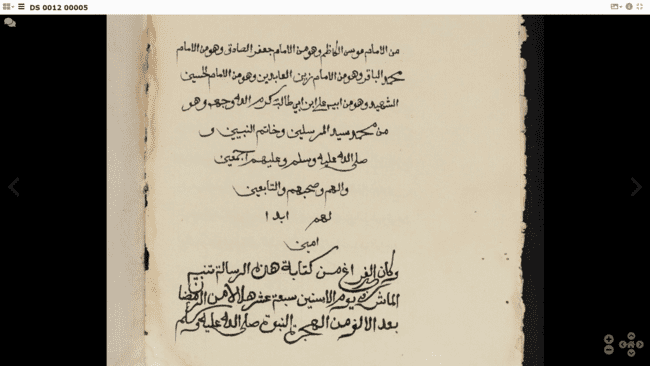 DS 0012 00005
من الامام موسى الكاظم وهو من الامام جعفر الصادق وهو من الامام
محمد الباقر وهو من الامام زين العابدين وهو من الامام الحسين
الشهيد وهو من ابيه علي ابن ابي طالب كرم الله وجهه وهو
من محمد سيد المرسلين وخاتم النبيين و
صلى الله عليه وسلم وعليهم اجمعين
والهم وصحبهم والتابعين
لهم ابدا
امين
وكان الفراغ من كتابة هذه الرسالة تنبيه
الماشي في يوم الاسنين سبعة عشر هلالا من الرمضان
بعد الالف من الهجرة النبوة صلى الله عليه وسلم